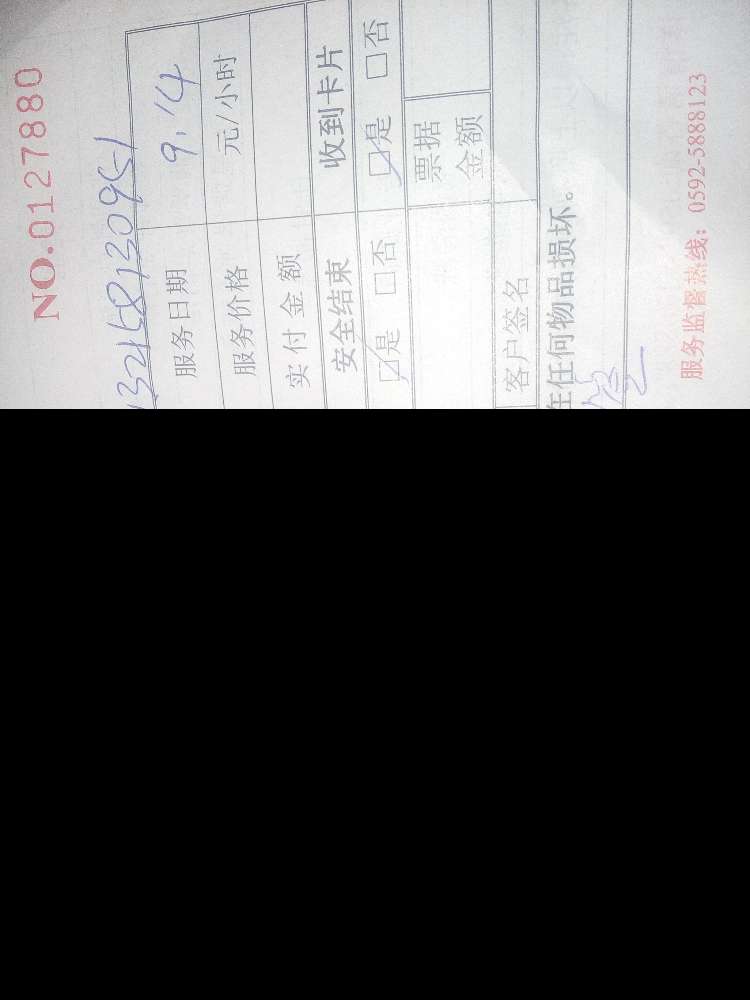 NO.0127880
服务日期 9.14
服务价格 元/小时
实付金额
安全结束 收到卡片
是 □否 是 □否
票据
金额
客户签名
任何物品损坏。
服务监督热线：0592-5888123